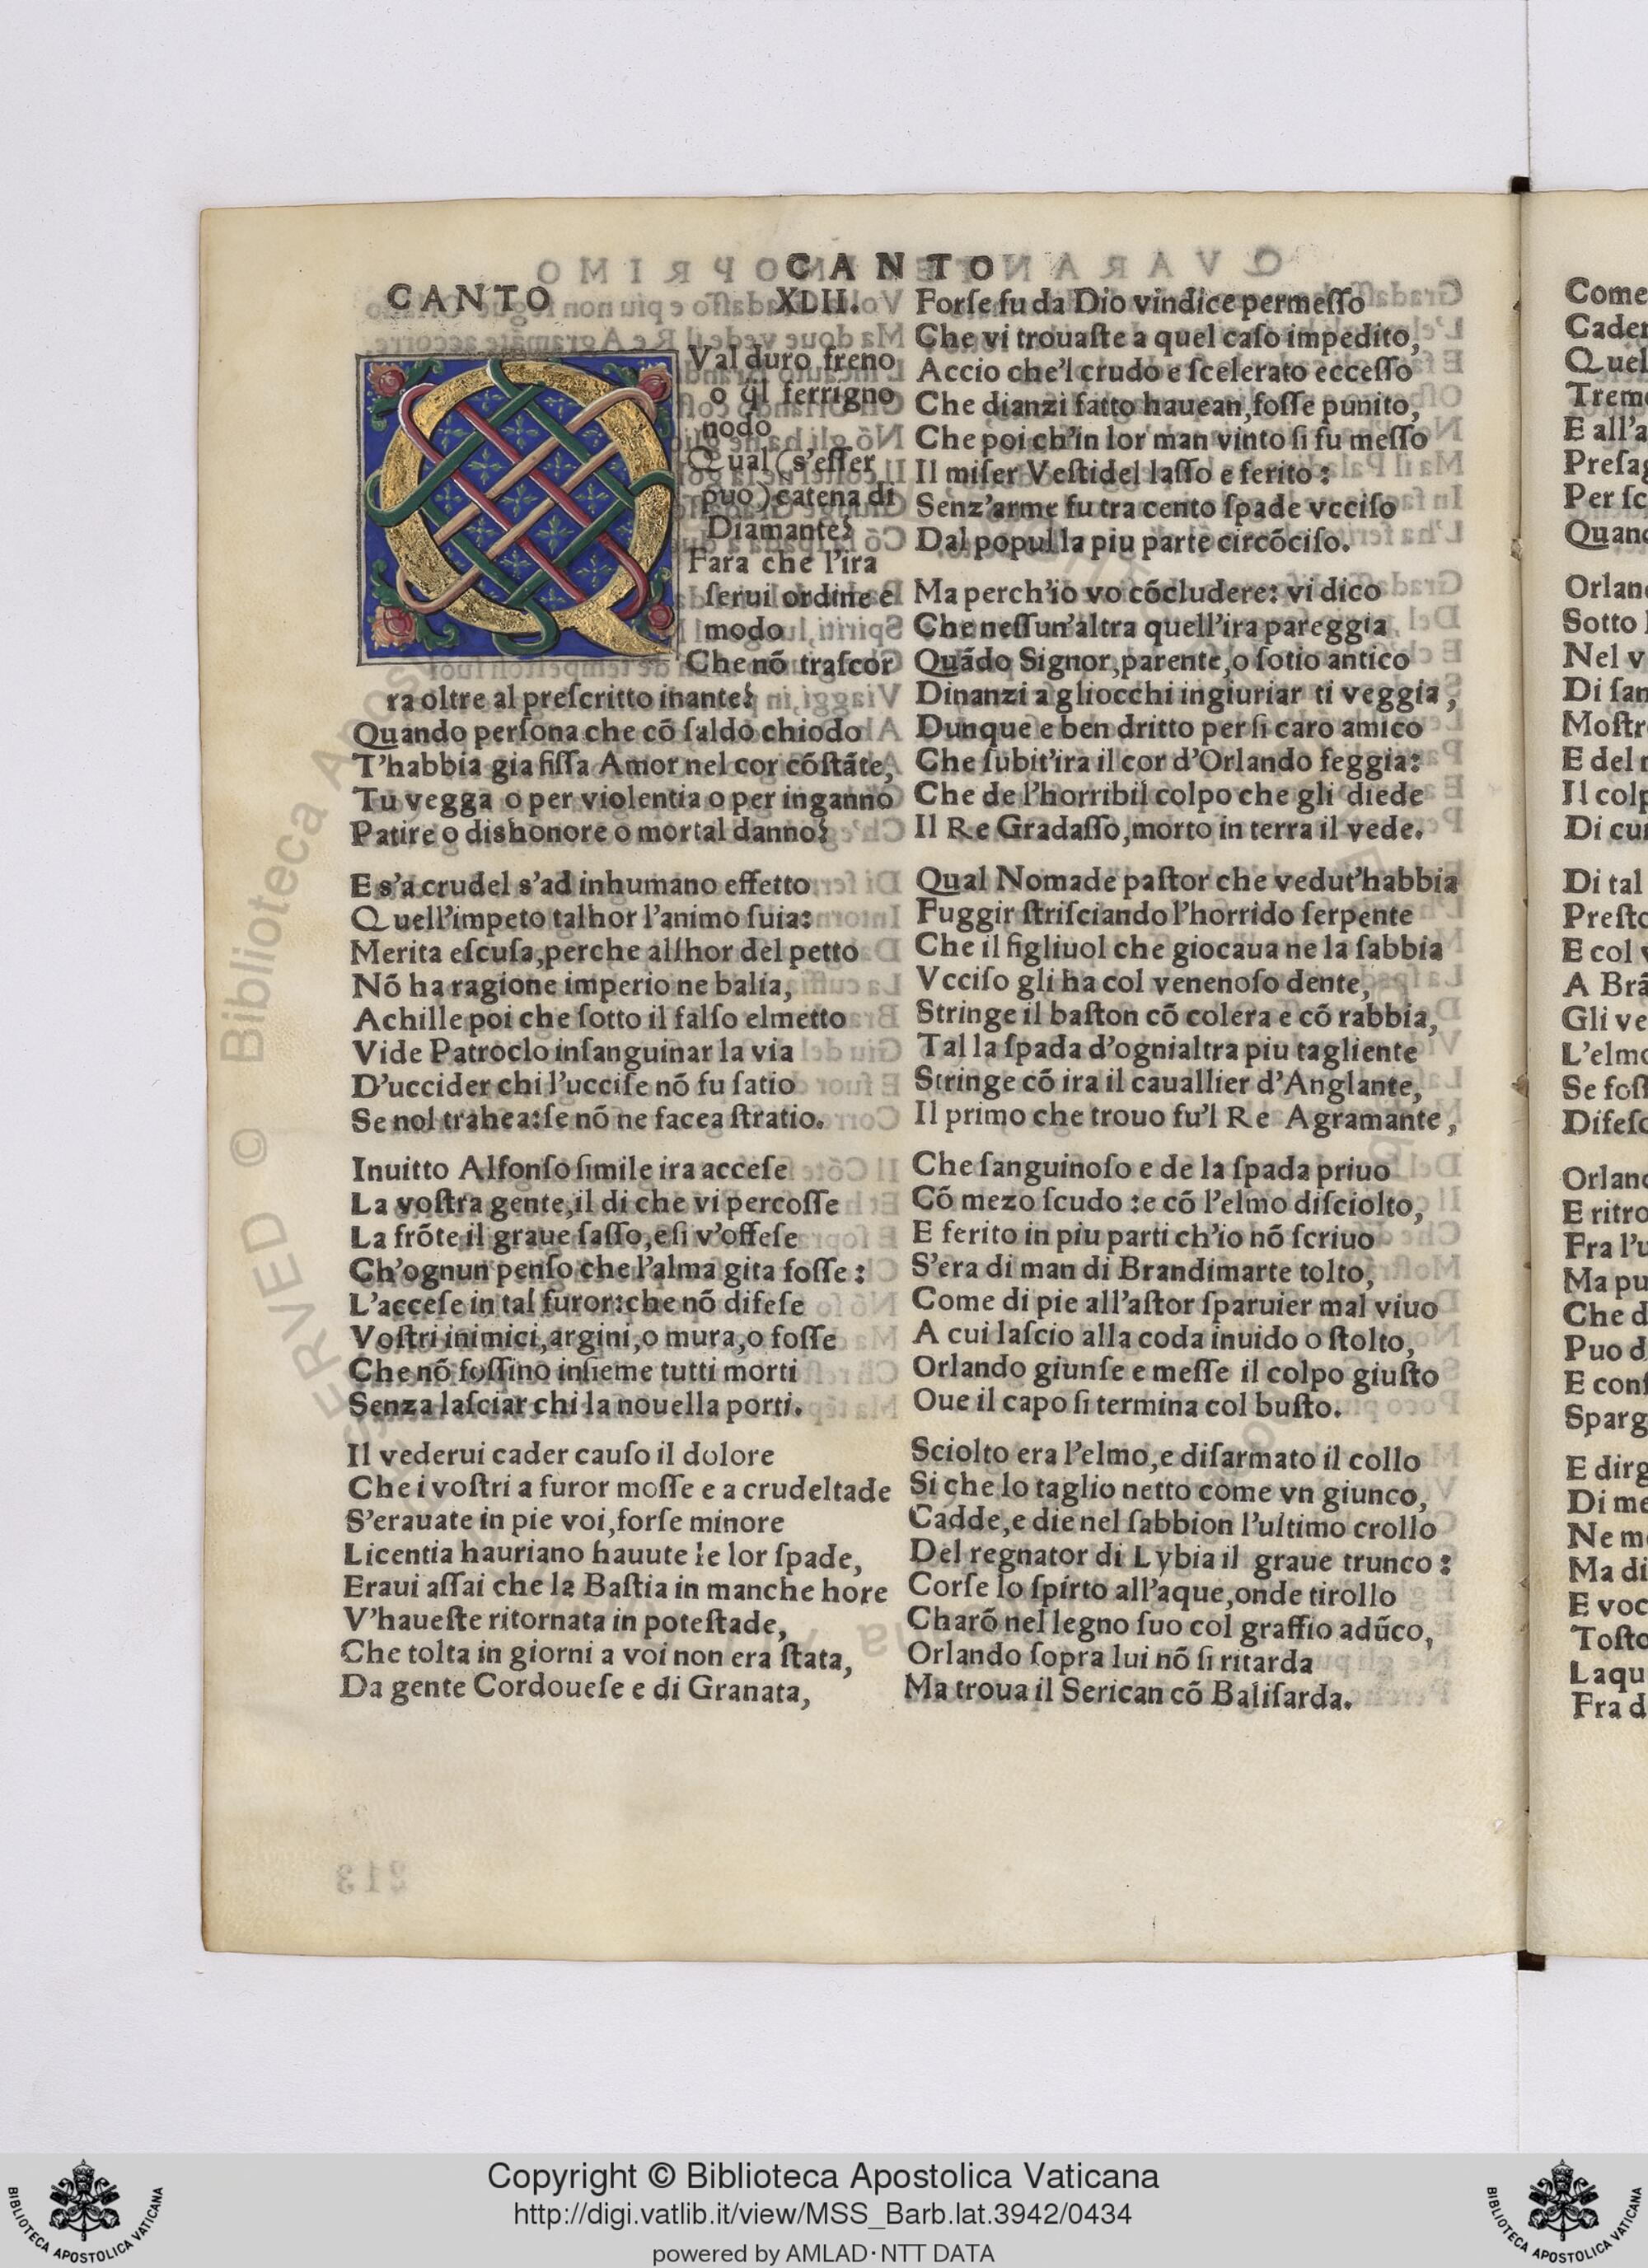 CANTO
CANTO XLII.
QVal duro freno
o q̃l ferrigno
nodo
Qual (s'eſſer
puo) catena di
Diamante?
Fara che l'ira
ſerui ordine e
modo
Che nõ traſcor
ra oltre al preſcritto inante?
Quando perſona che cõ ſaldo chiodo
T'habbia gia fiſſa Amor nel cor cõſtãte,
Tu vegga o per violentia o per inganno
Patire o dishonore o mortal danno?
E s'a crudel s'ad inhumano effetto
Quell'impeto talhor l'animo ſuia:
Merita eſcuſa, perche allhor del petto
Nõ ha ragione imperio ne balia,
Achille poi che ſotto il falſo elmetto
Vide Patroclo inſanguinar la via
D'uccider chi l'ucciſe nõ fu ſatio
Se nol trahea: ſe nõ ne facea ſtratio.
Inuitto Alfonſo ſimile ira acceſe
La voſtra gente, il di che vi percoſſe
La frõte il graue ſaſſo, e ſi v'offeſe
Ch'ognun penſo che l'alma gita foſſe:
L'acceſe in tal furor: che nõ difeſe
Voſtri inimici, argini, o mura, o foſſe
Che nõ foſſino inſieme tutti morti
Senza laſciar chi la nouella porti.
Il vederui cader cauſo il dolore
Che i voſtri a furor moſſe e a crudeltade
S'erauate in pie voi, forſe minore
Licentia hauriano hauute le lor ſpade,
Eraui aſſai che la Baſtia in manche hore
V'haueſte ritornata in poteſtade,
Che tolta in giorni a voi non era ſtata,
Da gente Cordoueſe e di Granata,
Forſe fu da Dio vindice permeſſo
Che vi trouaſte a quel caſo impedito,
Accio che'l crudo e ſcelerato ecceſſo
Che dianzi fatto hauean, foſſe punito,
Che poi ch'in lor man vinto ſi fu meſſo
Il miſer Veſtidel laſſo e ferito:
Senz'arme fu tra cento ſpade vcciſo
Dal popul la piu parte circõciſo.
Ma perch'io vo cõcludere: vi dico
Che neſſun'altra quell'ira pareggia
Quãdo Signor, parente, o ſotio antico
Dinanzi a gliocchi ingiuriar ti veggia,
Dunque e ben dritto per ſi caro amico
Che ſubit'ira il cor d'Orlando feggia:
Che de l'horribil colpo che gli diede
Il Re Gradaſſo, morto in terra il vede.
Qual Nomade paſtor che vedut'habbia
Fuggir ſtriſciando l'horrido ſerpente
Che il figliuol che giocaua ne la ſabbia
Vcciſo gli ha col venenoſo dente,
Stringe il baſton cõ colera e cõ rabbia,
Tal la ſpada d'ognialtra piu tagliente
Stringe cõ ira il cauallier d'Anglante,
Il primo che trouo fu'l Re Agramante,
Che ſanguinoſo e de la ſpada priuo
Cõ mezo ſcudo: e cõ l'elmo diſciolto,
E ferito in piu parti ch'io nõ ſcriuo
S'era di man di Brandimarte tolto,
Come di pie all'aſtor ſparuier mal viuo
A cui laſcio alla coda inuido o ſtolto,
Orlando giunſe e meſſe il colpo giuſto
Oue il capo ſi termina col buſto.
Sciolto era l'elmo, e diſarmato il collo
Si che lo taglio netto come vn giunco,
Cadde, e die nel ſabbion l'ultimo crollo
Del regnator di Lybia il graue trunco:
Corſe lo ſpirto all'aque, onde tirollo
Charõ nel legno ſuo col graffio adũco,
Orlando ſopra lui nõ ſi ritarda
Ma troua il Serican cõ Baliſarda.
Copyright © Biblioteca Apostolica Vaticana
http://digi.vatlib.it/view/MSS_Barb.lat.3942/0434
powered by AMLAD·NTT DATA
BIBLIOTECA APOSTOLICA VATICANA
BIBLIOTECA APOSTOLICA VATICANA